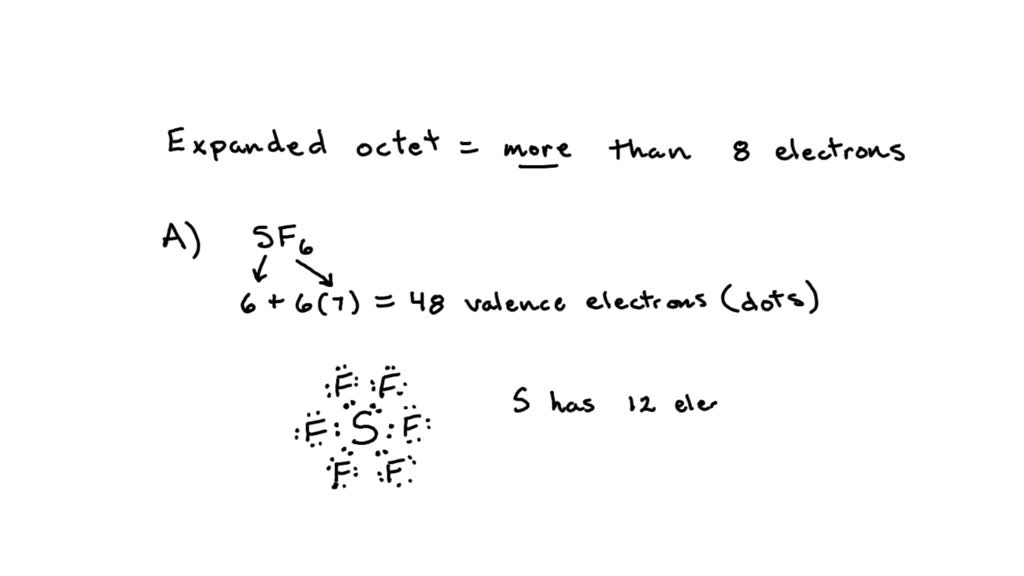 Expanded octet = more than 8 electrons
A) SF₆
6 + 6(7) = 48 valence electrons (dots)
:F: :F:
:F: S : F: S has 12 ele
:F: :F: